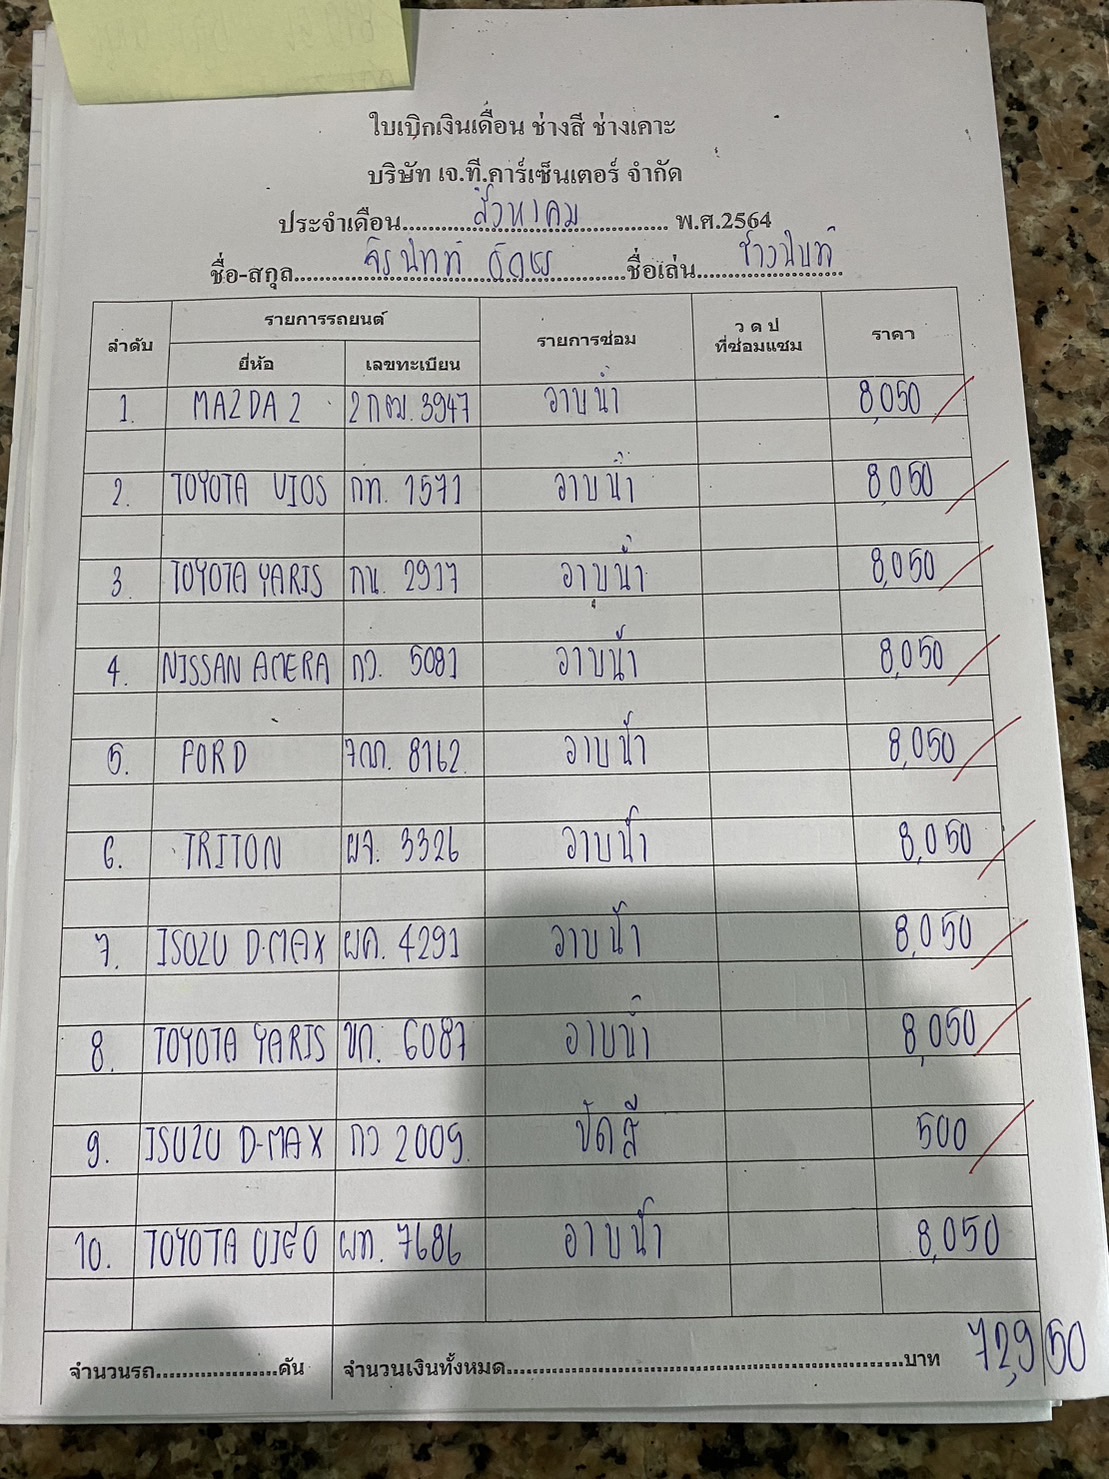 ใบเบิกเงินเดือน ช่างสี ช่างเคาะ
บริษัท เจ.ที.คาร์เซ็นเตอร์ จำกัด
ประจำเดือน สิงหาคม พ.ศ.2564
ชื่อ-สกุล ชื่อเล่น
ลำดับ รายการรถยนต์ รายการซ่อม ว ด ป ที่ซ่อมแซม ราคา
ยี่ห้อ เลขทะเบียน
1. MAZDA 2 2กฒ. 3947 อาบน้ำ 8,050
2. TOYOTA VIOS กท. 1571 อาบน้ำ 8,050
3. TOYOTA YARIS กน. 2917 อาบน้ำ 8,050
4. NISSAN AMERA กว. 5081 อาบน้ำ 8,050
5. FORD 8162 อาบน้ำ 8,050
6. TRITON ผจ. 3326 อาบน้ำ 8,050
7. ISUZU D-MAX ผค. 4291 อาบน้ำ 8,050
8. TOYOTA YARIS ขก. 6087 อาบน้ำ 8,050
9. ISUZU D-MAX กว 2009. ขัดสี 500
10. TOYOTA VIGO ผท. 7686 อาบน้ำ 8,050
จำนวนรถ คัน จำนวนเงินทั้งหมด บาท 72,950